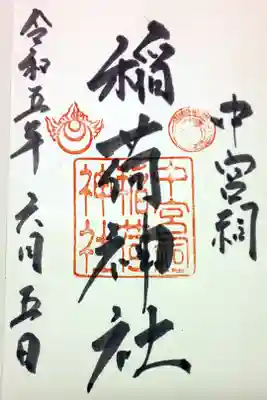 中宮祠
稲荷神社
中宮祠
稲荷
神社
令和五年 六月 五日